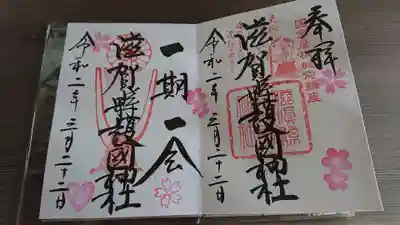 奉拝
滋賀縣護國神社
令和二年三月二十二日
一期一会
滋賀縣護國神社
令和二年三月二十二日